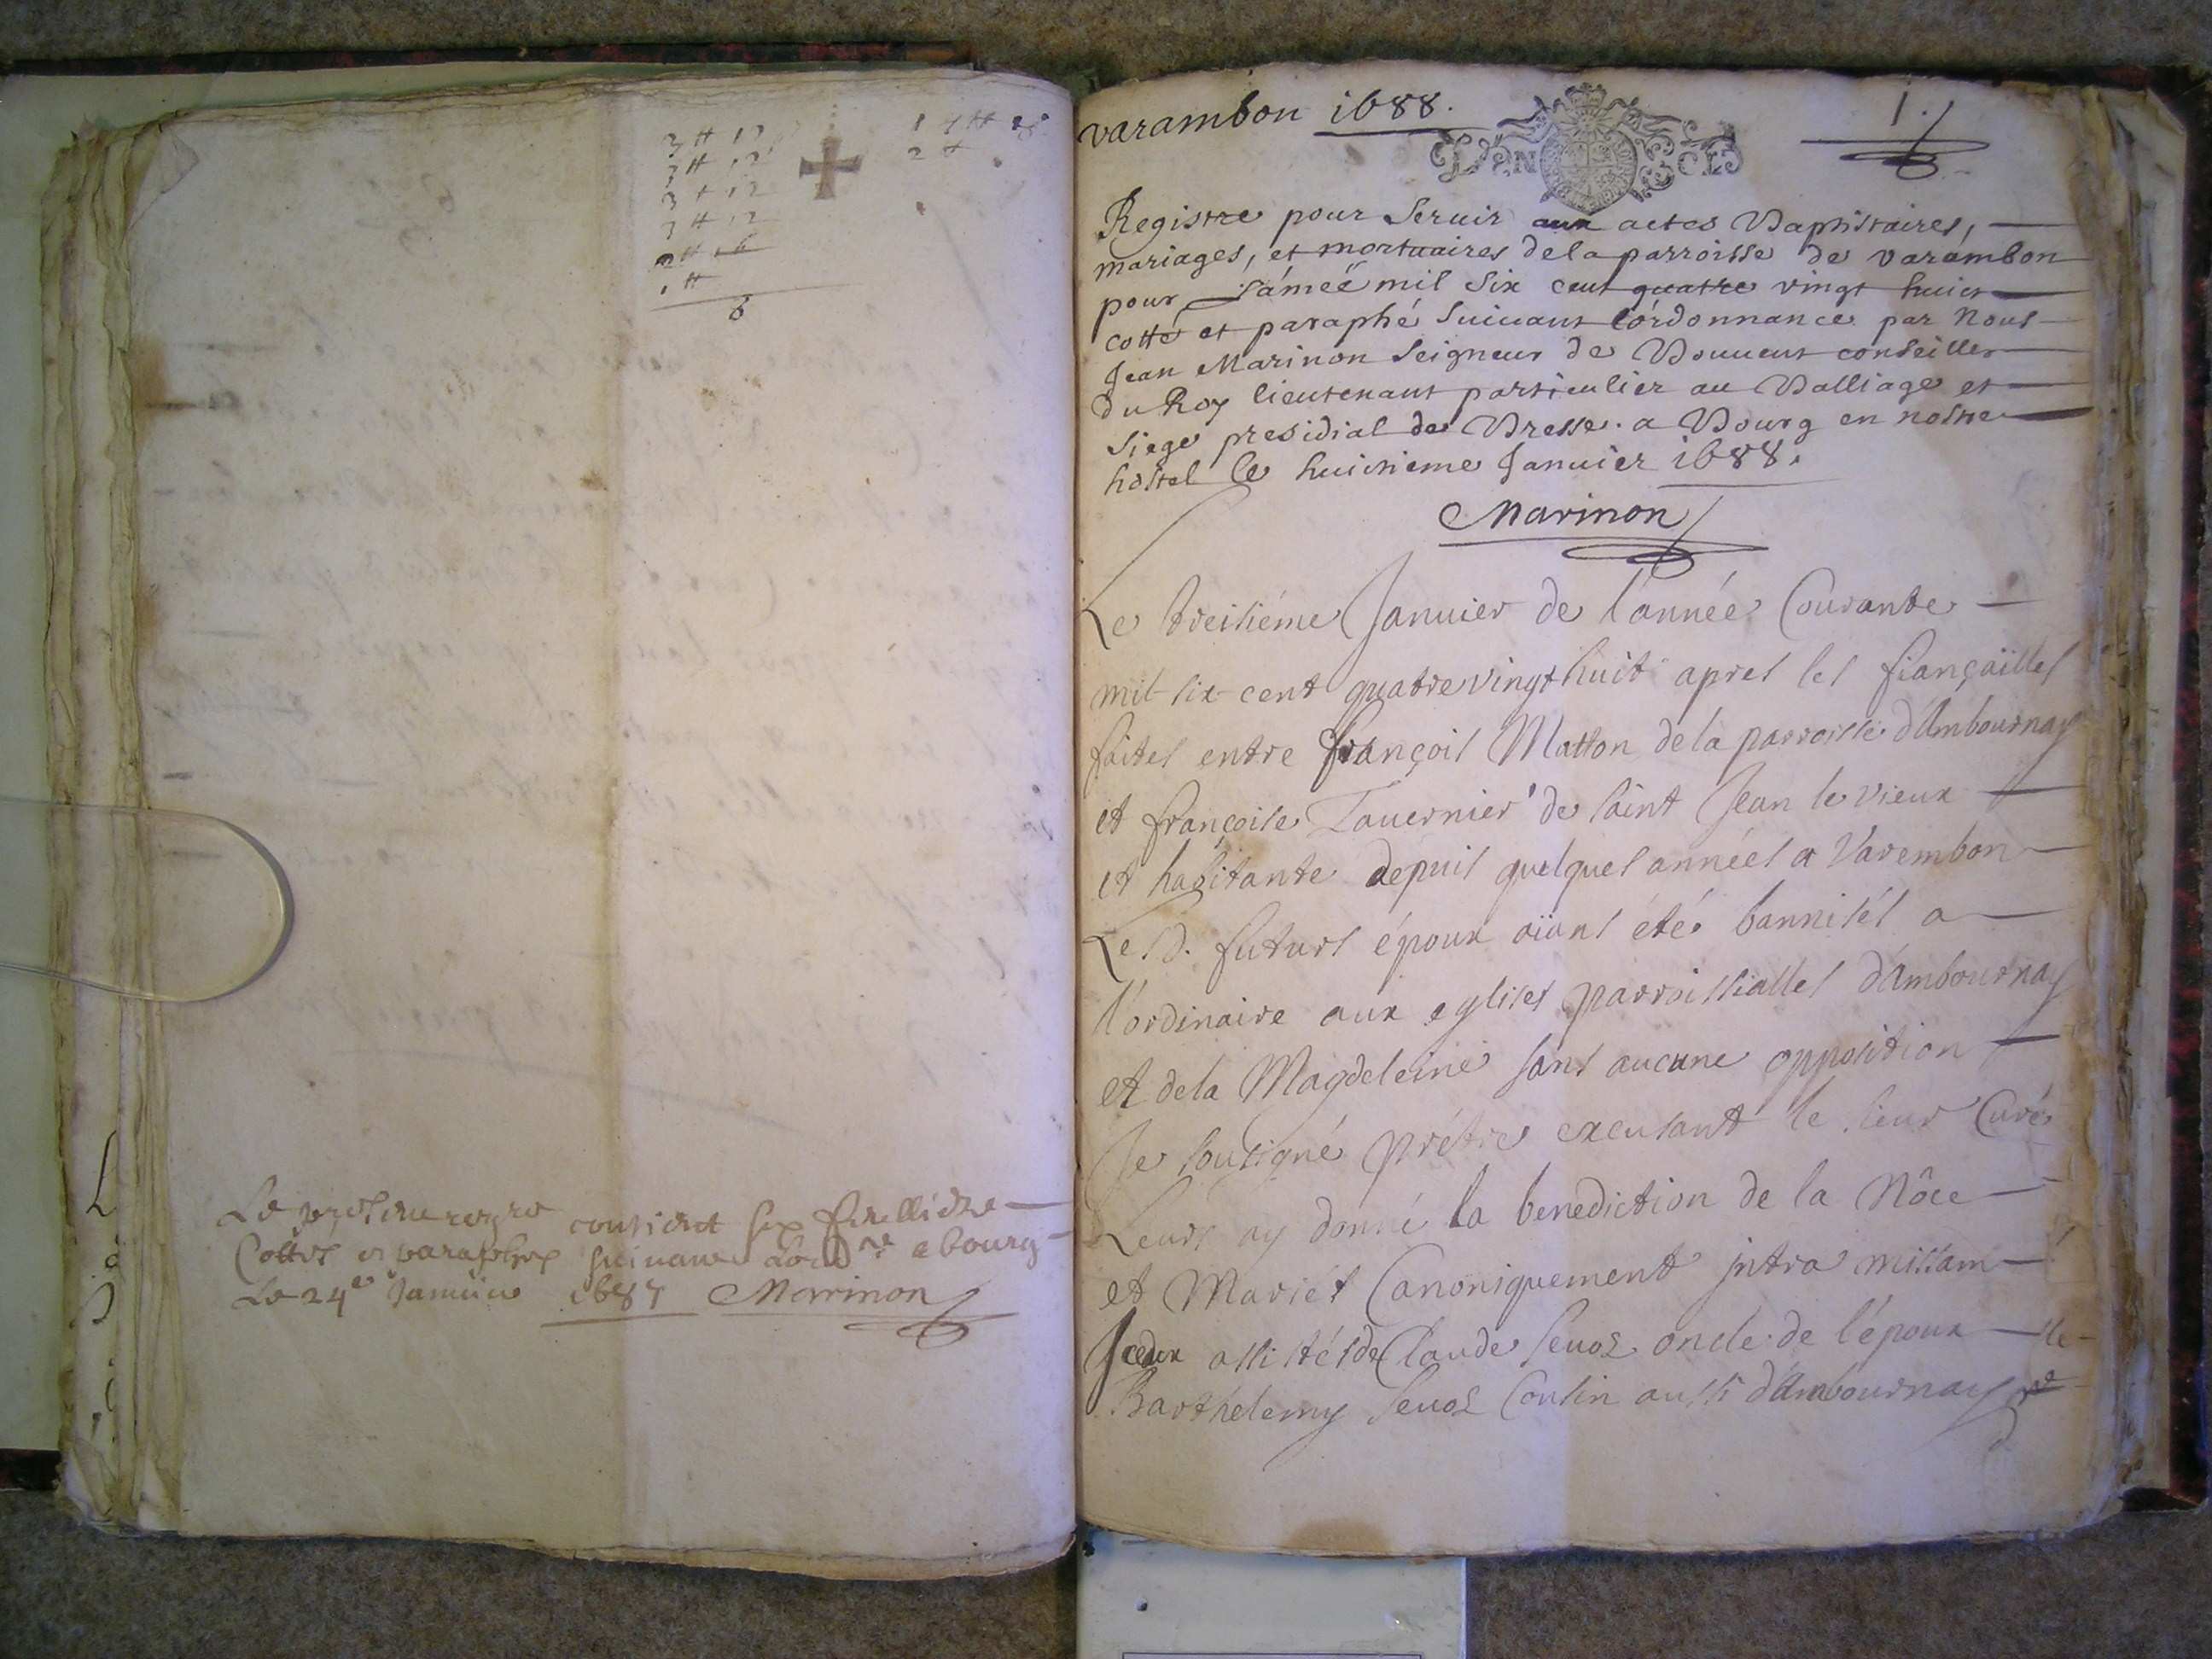 3 tt 12
3 tt 12
3 t 12
3 tt 12
2 tt 16
1 tt
Le present registre contient six feuilliets
Cottés et paraphez suivant L'ord.ce a bourg
Le 24e Januier 1687 Marinon
varambon 1688.
1.
Registre pour Seruir aux actes Baptistaires,
mariages, et mortuaires de la parroisse de varambon
pour L'année mil Six cent quatre vingt huict
cotté et paraphé Suiuant l'ordonnance par Nous
Jean Marinon Seigneur de Bouuent conseiller
du Roy lieutenant particulier au Balliage et
Siege presidial de Bresse. a Bourg en nostre
hostel le huictieme Januier 1688.
Marinon
Le treisiéme Januier de l'année Courante
mil six cent quatre vingt huit apres les fiançailles
faites entre françois Matton de la parroisse d'Ambournay
et françoise Tauernier de saint Jean le vieux
et habitante depuis quelques années a Varembon
Les d. futurs époux aïans été bannisés a
l'ordinaire aux eglises parroissialles d'Ambournay
et de la Magdeleine sans aucune opposition
Je sousigné prétre excusant le sieur Curé
Leurs ay donné la benediction de la Nôce
et Mariét Canoniquement jntra missam
Jceux assistés de Claude Seuoz oncle de l'époux
Barthelemy Seuoz Cousin aussi d'Ambournay